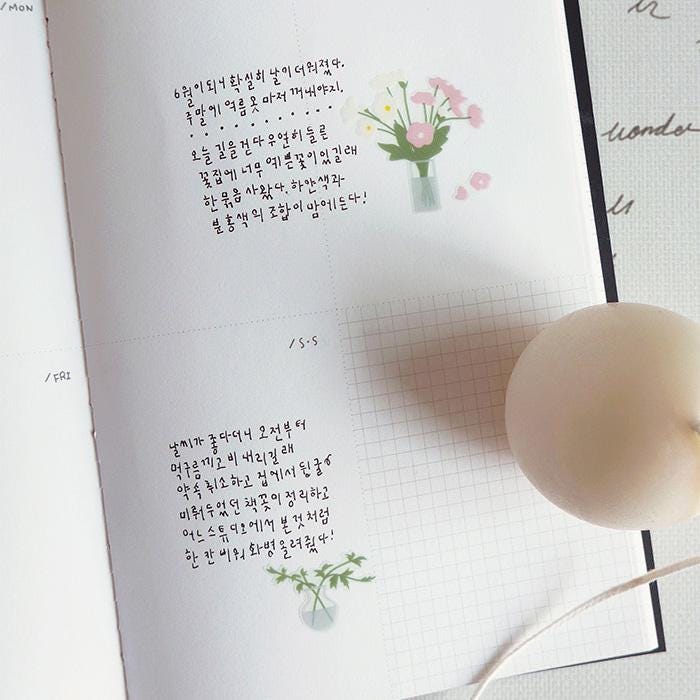 /MON
6월이 되니 확실히 날이 더워졌다.
주말에 여름옷 마저 꺼내야지.
오늘 길을 걷다 우연히 들른
꽃집에 너무 예쁜 꽃이 있길래
한 묶음 사왔다. 하얀색과
분홍색의 조합이 맘에 든다!
/FRI
/S·S
날씨가 좋다더니 오전부터
먹구름 끼고 비 내리길래
약속 취소하고 집에서 뒹굴
미뤄두었던 책꽂이 정리하고
어느 스튜디오에서 본 것처럼
한 칸 비워 화병 올려줬다!